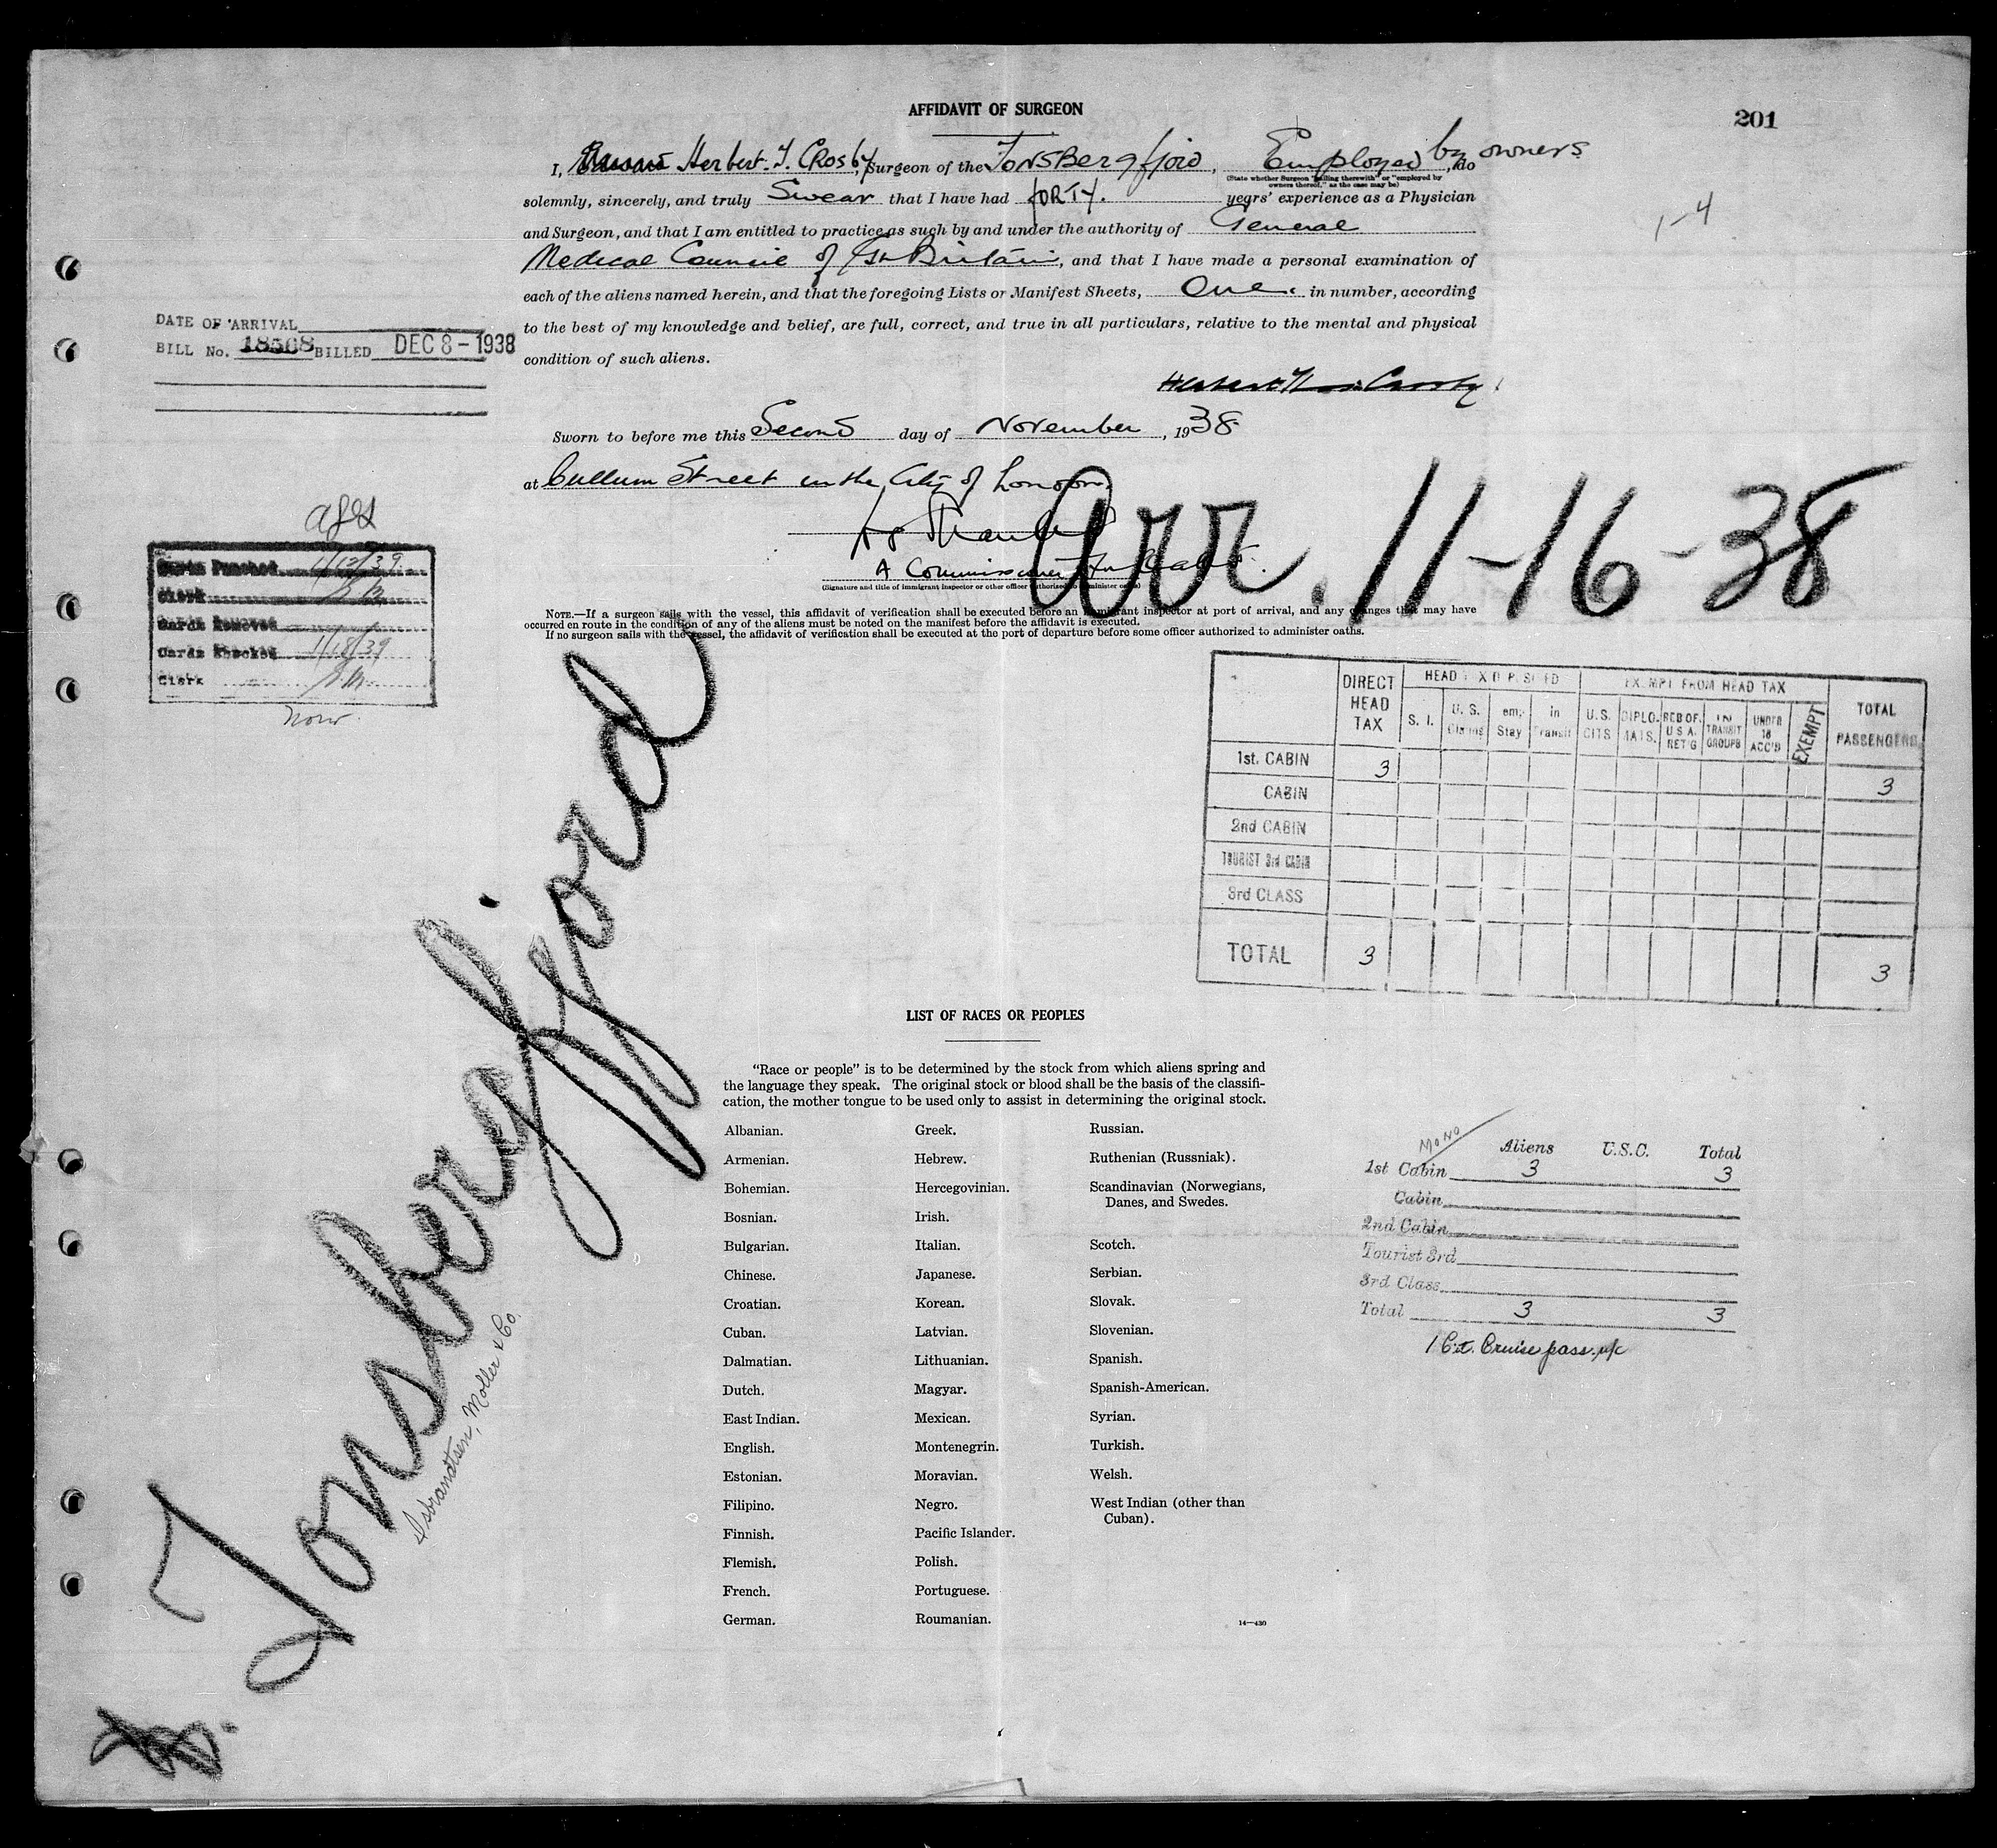 AFFIDAVIT OF SURGEON
201
I, Herbert. T. Crosby, Surgeon of the Tonsbergfjord, Employed by owners, do
(State whether Surgeon "sailing therewith" or "employed by owners thereof," as the case may be)
solemnly, sincerely, and truly Swear that I have had FORTY. years' experience as a Physician
and Surgeon, and that I am entitled to practice as such by and under the authority of General
Medical Council of Gt Britain, and that I have made a personal examination of
each of the aliens named herein, and that the foregoing Lists or Manifest Sheets, One. in number, according
to the best of my knowledge and belief, are full, correct, and true in all particulars, relative to the mental and physical
condition of such aliens.
1-4
DATE OF ARRIVAL
BILL No. 18568 BILLED DEC 8-1938
Sworn to before me this Second day of November, 1938
at Cullum Street in the City of London
A Commissioner for Oaths.
(Signature and title of immigrant inspector or other officer authorized to administer oaths)
Arr. 11-16-38
NOTE.—If a surgeon sails with the vessel, this affidavit of verification shall be executed before an immigrant inspector at port of arrival, and any changes that may have
occurred en route in the condition of any of the aliens must be noted on the manifest before the affidavit is executed.
If no surgeon sails with the vessel, the affidavit of verification shall be executed at the port of departure before some officer authorized to administer oaths.
Cards Punched 1/12/39
Clerk
Cards Removed
Cards Checked 1/18/39
Clerk
DIRECT HEAD TAX
HEAD TAX DEPOSITED
S. I.
U. S. Claims
Stay
in Transit
EXEMPT FROM HEAD TAX
U.S. CITS
DIPLO-MATS.
RES OF. U S A. RET'G
IN TRANSIT GROUPS
UNDER 16 ACC'D
EXEMPT
TOTAL PASSENGERS
1st. CABIN 3 3
CABIN
2nd CABIN
TOURIST 3rd CABIN
3rd CLASS
TOTAL 3 3
Tonsbergfjord
Isbrandtsen, Moller & Co.
LIST OF RACES OR PEOPLES
"Race or people" is to be determined by the stock from which aliens spring and
the language they speak. The original stock or blood shall be the basis of the classifi-
cation, the mother tongue to be used only to assist in determining the original stock.
Albanian.
Armenian.
Bohemian.
Bosnian.
Bulgarian.
Chinese.
Croatian.
Cuban.
Dalmatian.
Dutch.
East Indian.
English.
Estonian.
Filipino.
Finnish.
Flemish.
French.
German.
Greek.
Hebrew.
Hercegovinian.
Irish.
Italian.
Japanese.
Korean.
Latvian.
Lithuanian.
Magyar.
Mexican.
Montenegrin.
Moravian.
Negro.
Pacific Islander.
Polish.
Portuguese.
Roumanian.
Russian.
Ruthenian (Russniak).
Scandinavian (Norwegians,
Danes, and Swedes.
Scotch.
Serbian.
Slovak.
Slovenian.
Spanish.
Spanish-American.
Syrian.
Turkish.
Welsh.
West Indian (other than
Cuban).
14—430
MONO
Aliens U.S.C. Total
1st Cabin 3 3
Cabin
2nd Cabin
Tourist 3rd
3rd Class
Total 3 3
Cruise pass.